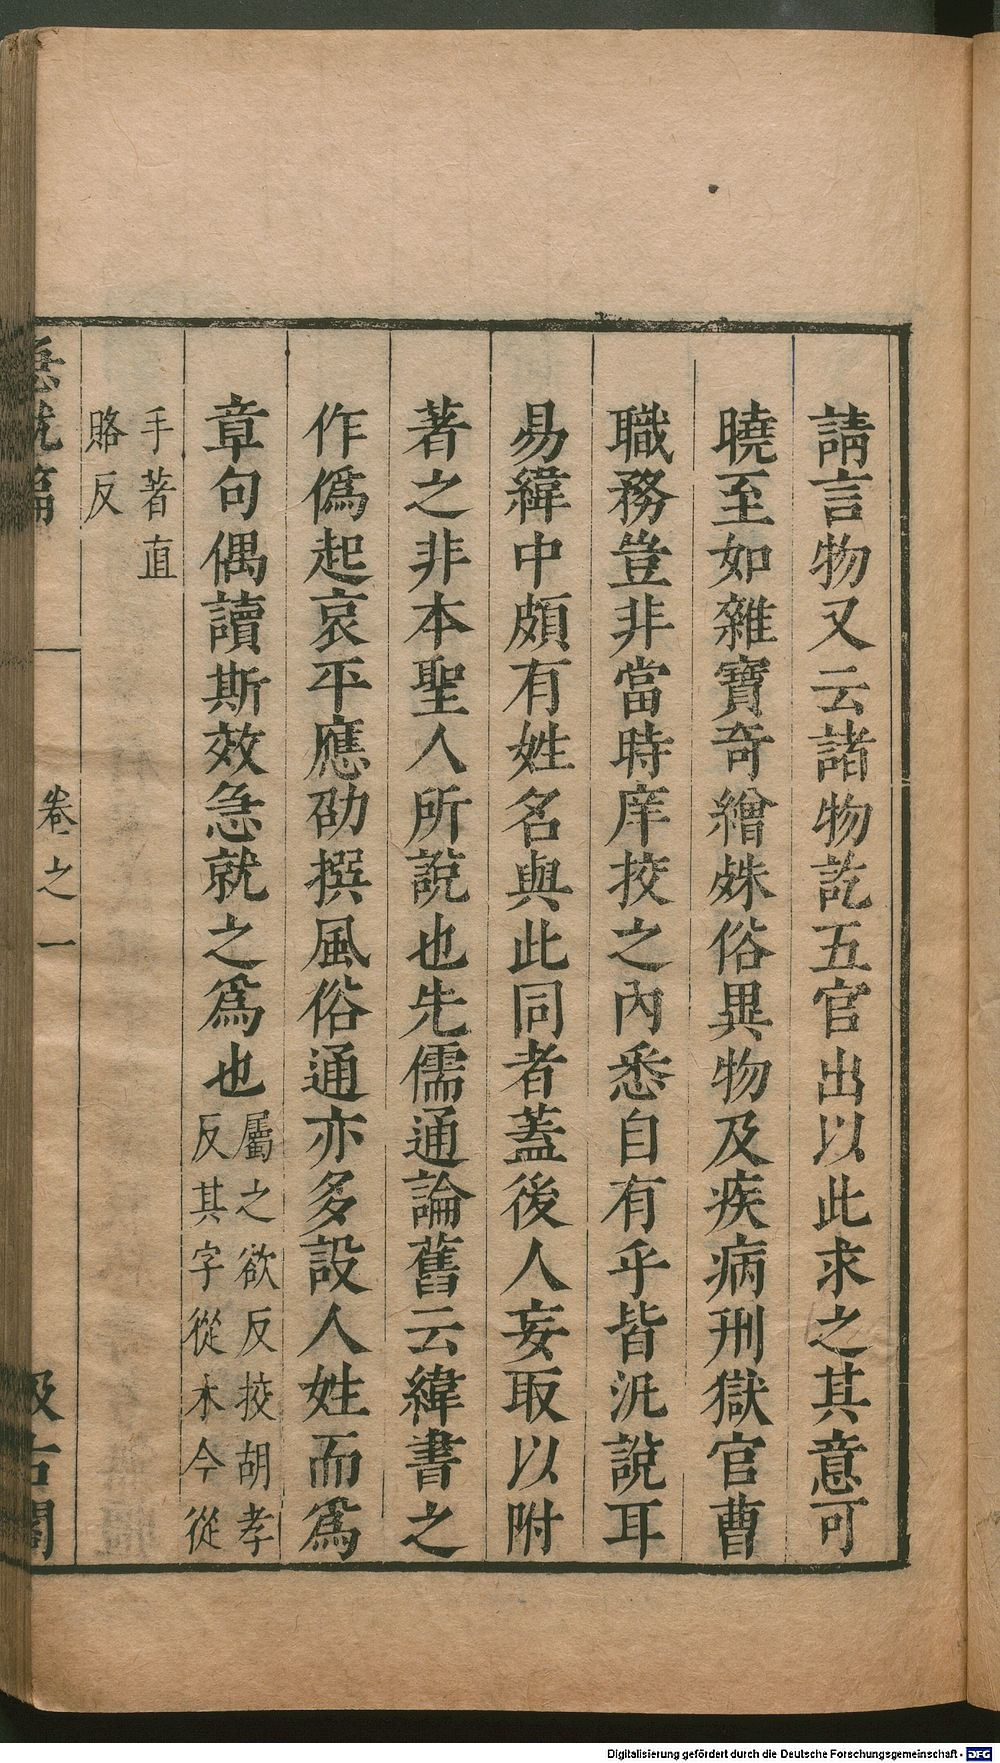 請言物又云諸物訖五官出以此求之其意可
曉至如雜寶奇繒殊俗異物及疾病刑獄官曹
職務豈非當時庠挍之內悉自有乎皆汎說耳
易緯中頗有姓名與此同者蓋後人妄取以附
著之非本聖人所說也先儒通論舊云緯書之
作僞起哀平應劭撰風俗通亦多設人姓而爲
章句偶讀斯效急就之爲也
屬之欲反挍胡孝
反其字從木今從
手著直
賂反
急就篇
卷之一
汲古閣
Digitalisierung gefördert durch die Deutsche Forschungsgemeinschaft - DFG